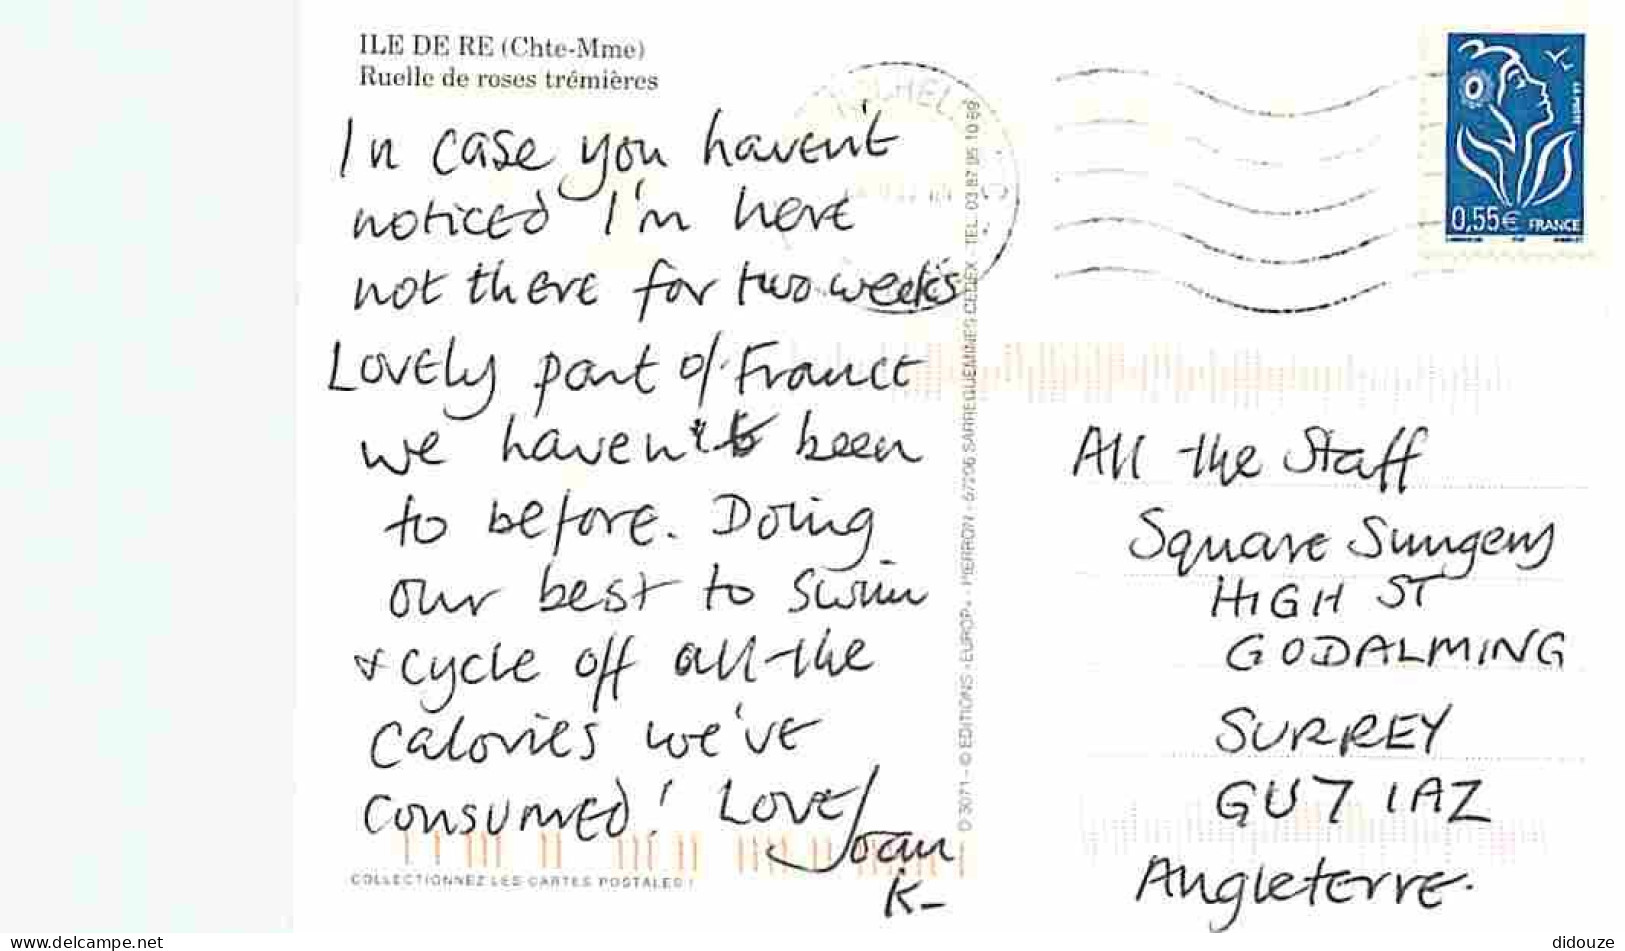 ILE DE RE (Chte-Mme)
Ruelle de roses trémières
In case you haven't
noticed I'm here
not there for two weeks
Lovely part of France
we haven't been
to before. Doing
our best to swim
& cycle off all the
calories we've
consumed! Love
Joan
K-
COLLECTIONNEZ LES CARTES POSTALES !
© EDITIONS «EUROP» - PIERRON - 57206 SARREGUEMINES CEDEX - TEL. 03 87 95 10 89
LA POSTE
0,55€ FRANCE
All the Staff
Square Surgery
HIGH ST
GODALMING
SURREY
GU7 1AZ
Angleterre.
www.delcampe.net
didouze